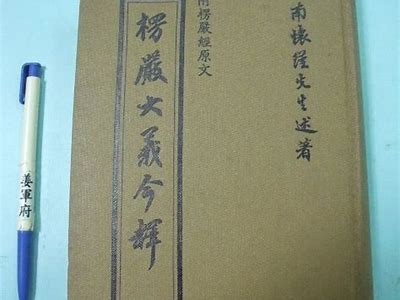 南懷瑾先生述著
附楞嚴經原文
楞嚴大義今釋
姜軍府